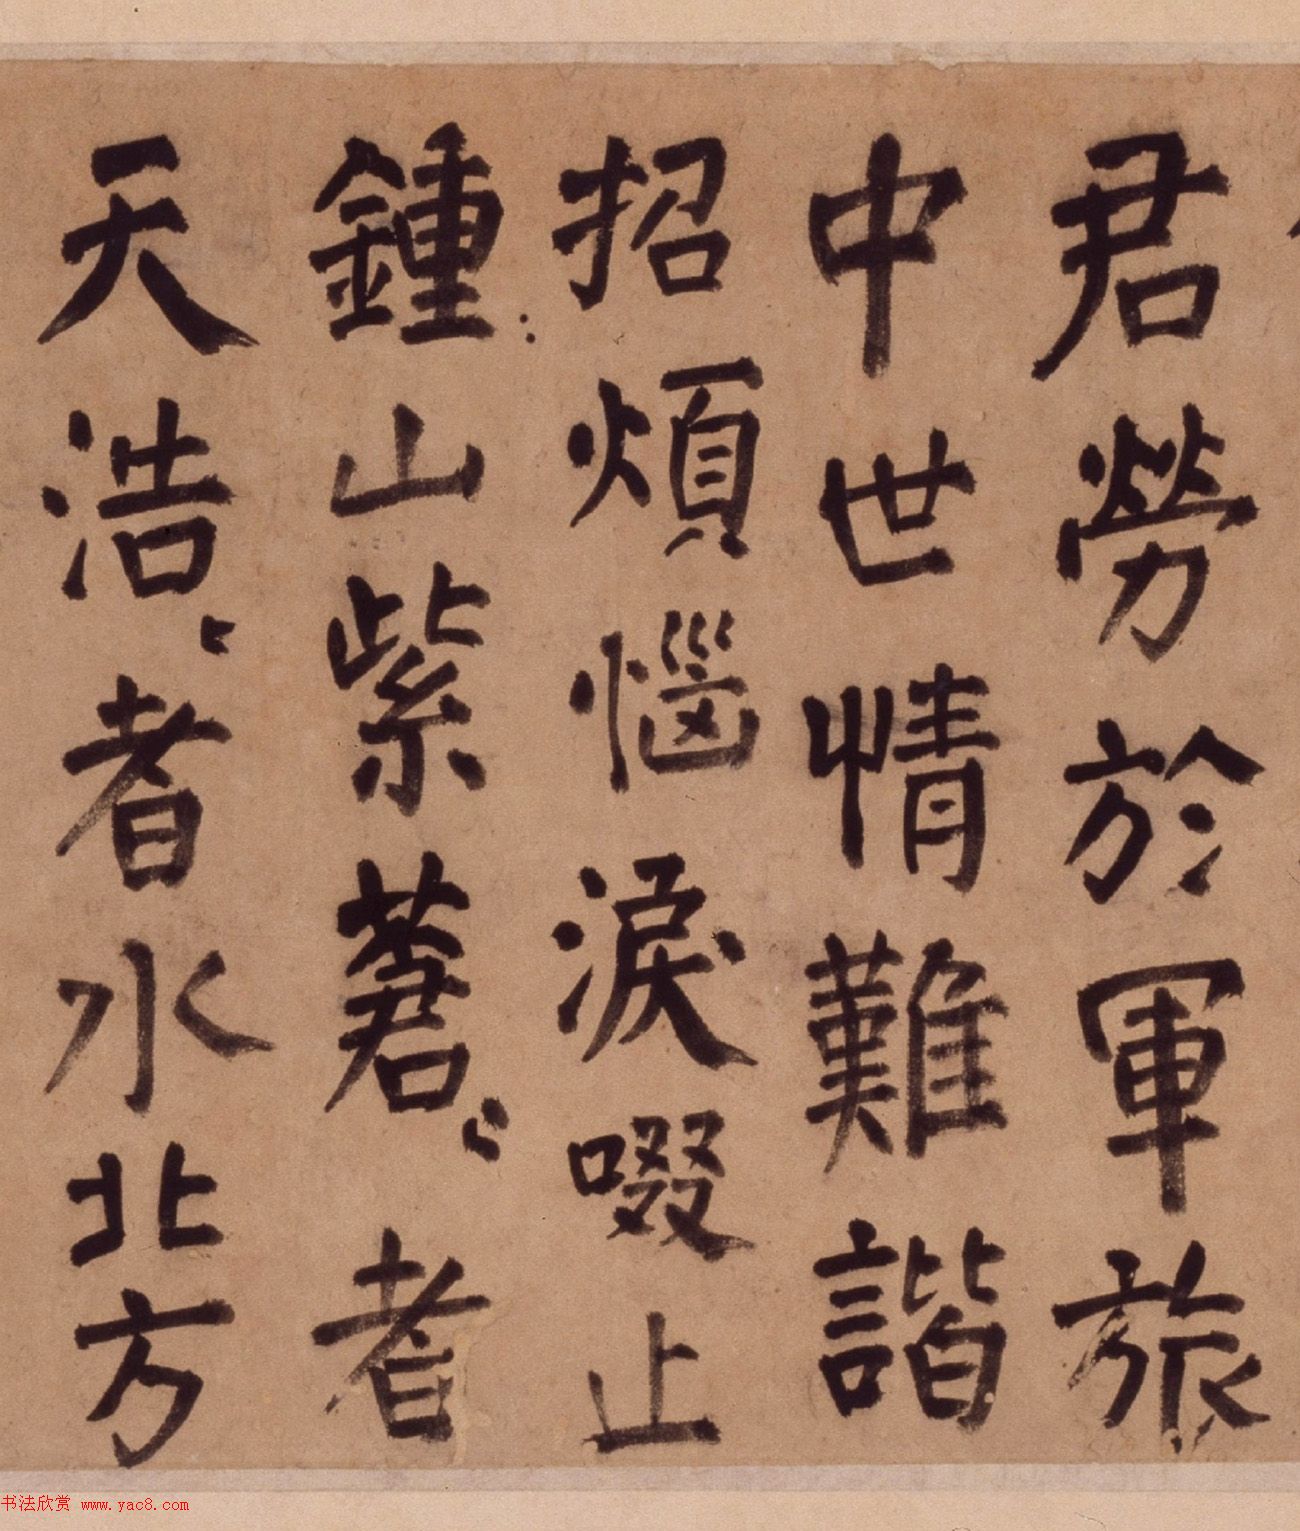 君勞於軍旅
中世情難諧
招煩惱淚啜止
鍾山紫著〻者
天浩〻者水北方
书法欣赏 www.yac8.com